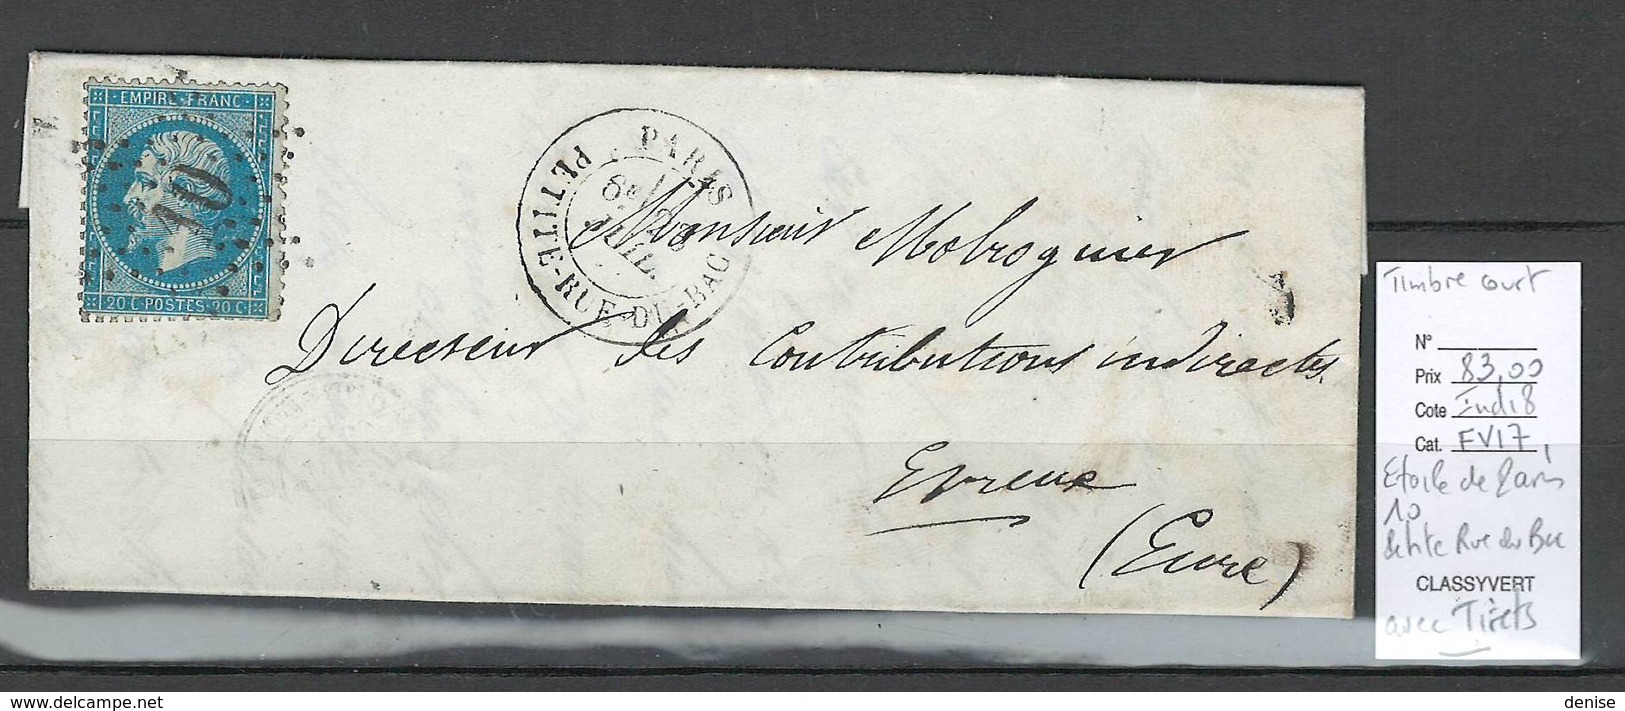 EMPIRE FRANC
10
20 C POSTES 20 C
PARIS
PETITE-RUE-DU-BAC
8E
JUIL.
Monsieur Molroguier
Directeur des Contributions indirectes
Evreux
(Eure)
Timbre court
N°
Prix 83,00
Cote Ind 18
Cat. FV17,
Etoile de Paris
10
Petite Rue du Bac
CLASSYVERT
avec Tirets
delcampe.net
denise